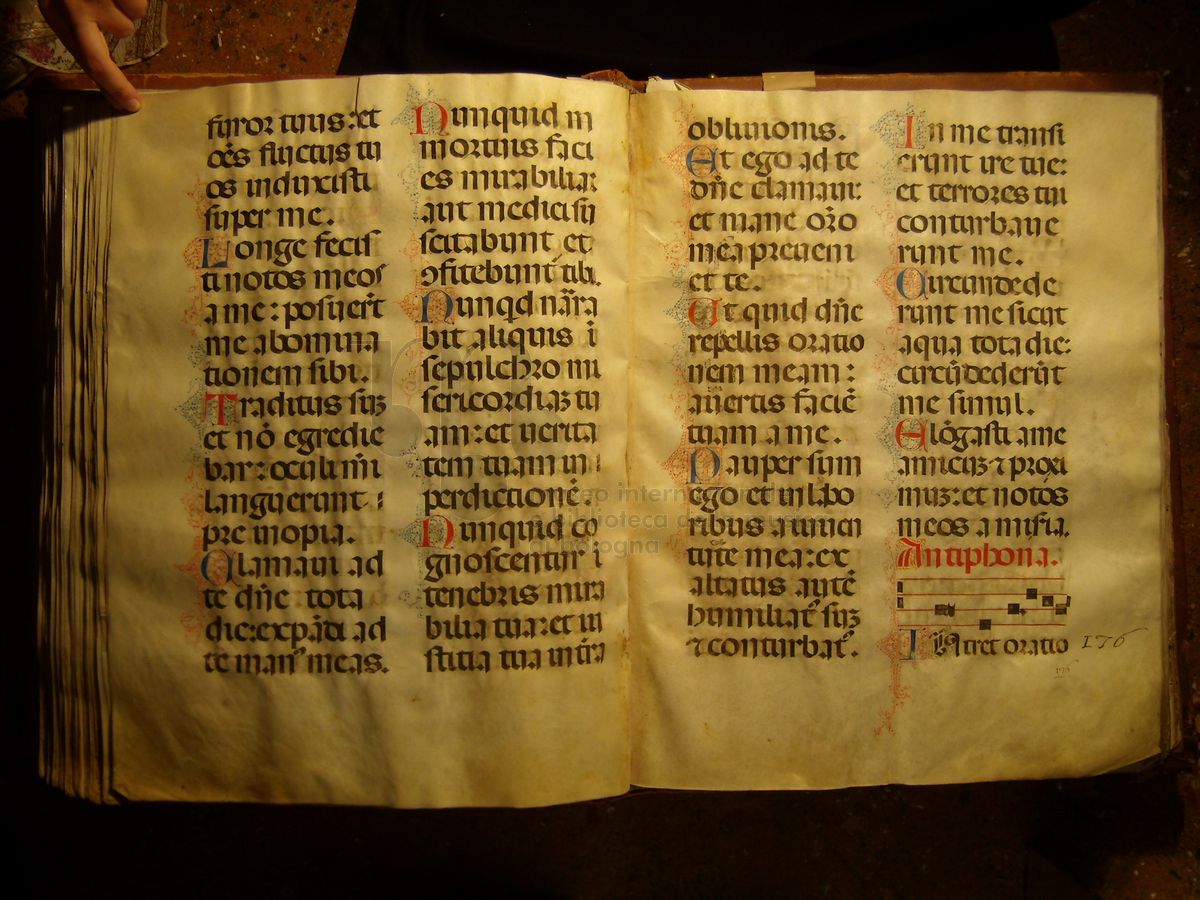 furor tuus: et
oēs fluctus tu
os induxisti
super me.
Longe fecis
ti notos meos
a me: posuerūt
me abomina
tionem sibi.
Traditus suꝫ
et nō egredie
bar: oculi mei
languerunt
pre inopia.
Clamaui ad
te dn̄e tota
die: expādi ad
te man᷒ meas.
Nunquid m
mortuis faci
es mirabilia:
aut medici su
scitabunt et
ꝯfitebunt᷑ tibi.
Nunqd nārra
bit aliquis ī
sepulchro mi
sericordiaꝫ tu
am: et uerita
tem tuam in
perdictionē.
Nunquid co
gnoscentur ī
tenebris mira
bilia tua: et iu
stitia tua in t̄ra
obliuionis.
Et ego ad te
dn̄e clamaui:
et mane or̄o
mea preueni
et te.
Ut quid dn̄e
repellis oratio
nem meam:
auertis faciē
tuam a me.
Pauper sum
ego et in labo
ribus a iuuen
tute mea: ex
altatus autē
humiliat᷒ suꝫ
⁊ conturbat᷒.
In me transi
erunt ire tue:
et terrores tui
conturbaue
runt me.
Circundede
runt me sicut
aqua tota die:
circūdederūt
me simul.
Elōgasti a me
amicuꝫ ⁊ proxi
muꝫ: et notos
meos a miseria.
Antiphona.
INtret oratio
176
museo internazionale
biblioteca della musica
bologna